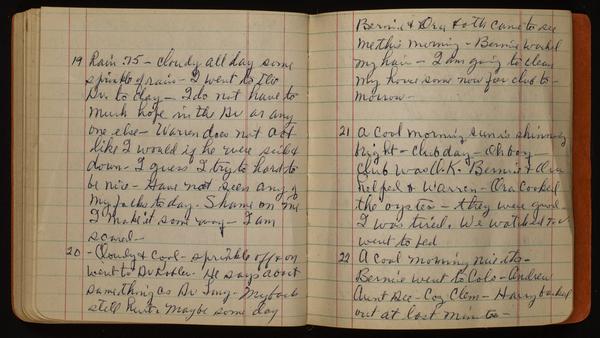 19 Rain .15 - cloudy all day some
sprinkle of rain - I went to the
Dr. to day - I do not have to
much hope in the Dr or any
one else - Warren does not act
like I would if he were sick &
down - I guess I try to hard to
be nice - Have not seen any of
my folks to day. Shame on me
I make it some way - I am
scared -
20 - Cloudy & cool - sprinkle off & on
went to Dr. He says about
same thing as Dr Long - My back
still hurts maybe some day
Bernie & Ora & oth came to see
me this morning - Bernie washed
my hair - I am going to clean
my house some now for club to-
morrow -
21 A cool morning sun is shinning
bright - Club day - Oh boy -
Club was O.K. Bernie & Ora
helped & Warren - Ora cooked
the oysters - they were good -
I was tired. We watched T.V
went to bed
22 A cool morning
Bernie went to Colo - Andrew
Aunt Dee - Coy Clem - Harry backed
out at last minute -